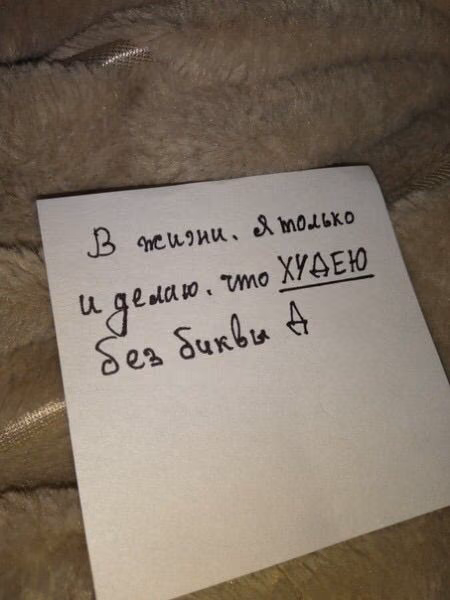 В жизни. я только
и делаю. что ХУДЕЮ
без буквы Д